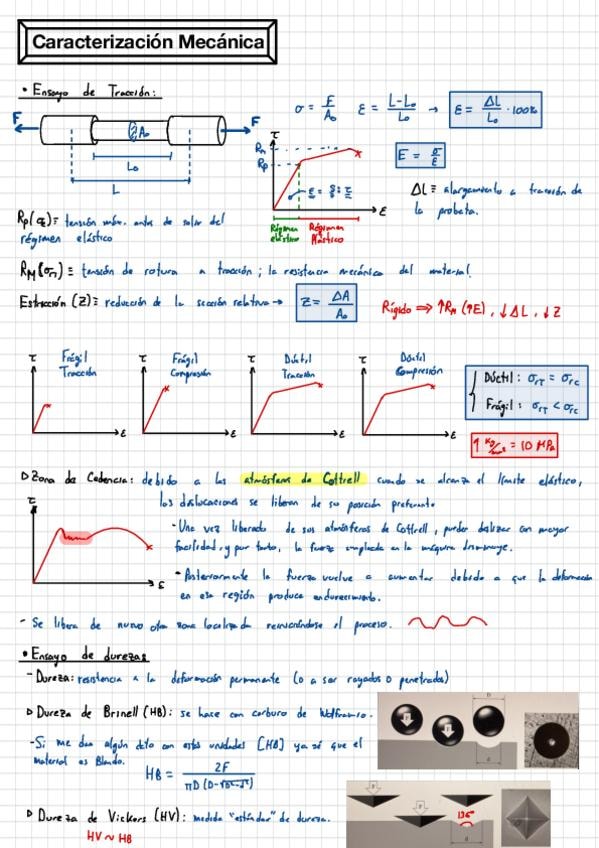 Caracterización Mecánica
• Ensayo de Tracción:
σ = F/A₀   ε = L-L₀/L₀ → ε = ΔL/L₀ · 100%
F   A₀   F
L₀
L
τ
Rm
Rp
ε
Régimen elástico   Régimen Plástico
E = σ/ε
ΔL ≡ alargamiento a tracción de
la probeta.
tensión máx. antes de salir del
régimen elástico
≡ tensión de rotura a tracción; la resistencia mecánica del material.
Estricción (Z) ≡ reducción de la sección relativa → Z = ΔA/A₀
Rígido ⇒ ↑RM (↑E), ↓ΔL, ↓Z
τ Frágil Tracción ε
τ Frágil Compresión ε
τ Dúctil Tracción ε
τ Dúctil Compresión ε
Dúctil: σrT = σrc
Frágil: σrT < σrc
= 10 MPa
▷ Zona de Cedencia: debido a las atmósferas de Cottrell cuando se alcanza el límite elástico,
las dislocaciones se liberan de su posición preferente
τ
ε
- Una vez liberado de sus atmósferas de Cottrell, pueden deslizar con mayor
facilidad, y por tanto, la fuerza empleada en la máquina disminuye.
- Posteriormente la fuerza vuelve a aumentar debido a que la deformación
en esa región produce endurecimiento.
- Se libera de nuevo otra zona localizada reiniciándose el proceso.
• Ensayo de durezas
- Dureza: resistencia a la deformación permanente (o a ser rayados o penetrados)
▷ Dureza de Brinell (HB): se hace con carburo de Wolframio.
- Si me dan algún dato con estas unidades [HB] ya sé que el
material es Blando.
HB = 2F / πD (D-√D²-d²)
D
d
▷ Dureza de Vickers (HV): medida "estándar" de dureza.
HV ~ HB
136°
d